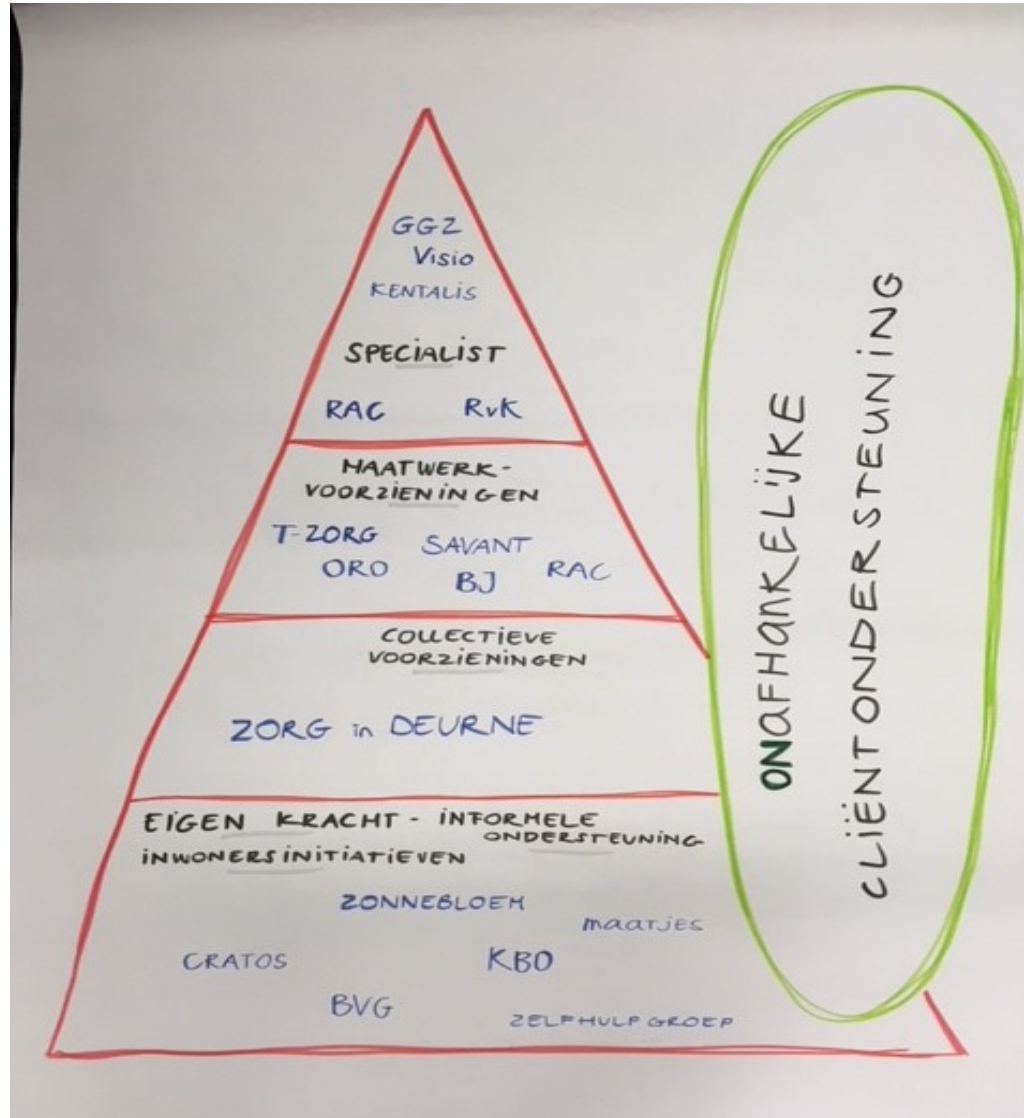 GGZ
Visio
KENTALIS
SPECIALIST
RAC RvK
MAATWERK-
VOORZIENINGEN
T-ZORG SAVANT
ORO BJ RAC
COLLECTIEVE
VOORZIENINGEN
ZORG in DEURNE
EIGEN KRACHT - INFORMELE
ONDERSTEUNING
INWONERSINITIATIEVEN
ZONNEBLOEM
maatjes
CRATOS KBO
BVG
ZELFHULP GROEP
ONAFHANKELIJKE
CLIËNTONDERSTEUNING